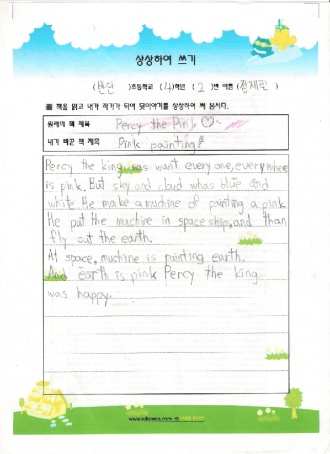 상상하여 쓰기
(번단)초등학교 (4)학년 (2)반 이름 (정채린)
책을 읽고 내가 작가가 되어 뒷이야기를 상상하여 써 봅시다.
원래의 책 제목 Percy the Pink
내가 바꾼 책 제목 Pink painting!
Percy the king was want every one, every where
is pink. But sky and cloud whas blue and
white He make a muchine of painting a pink
He put the muchine in space ship, and than
fly out the earth.
At space, muchine is painting earth.
And earth is pink Percy the king
was happy.